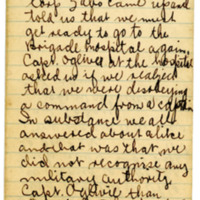 Corp. Zabo came up and
told us that we must
get ready to go to the
Brigade Hospital again.
Capt. Ogilvie at the hospital
asked us if we realized
that we were disobeying
a command from a captain.
In substance we all
answered about alike
and that was that we
did not recognize any
military authority.
Capt. Ogilvie then